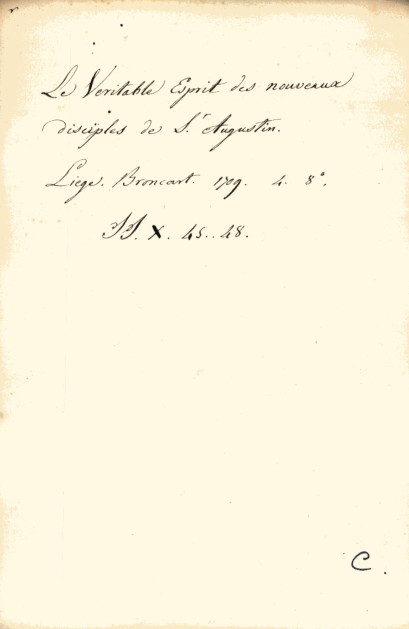 Le Veritable Esprit des nouveaux
disciples de S.t Augustin.
Liege. Broncart. 1709. 4. 8°.
JJ. X. 45..48.
C.